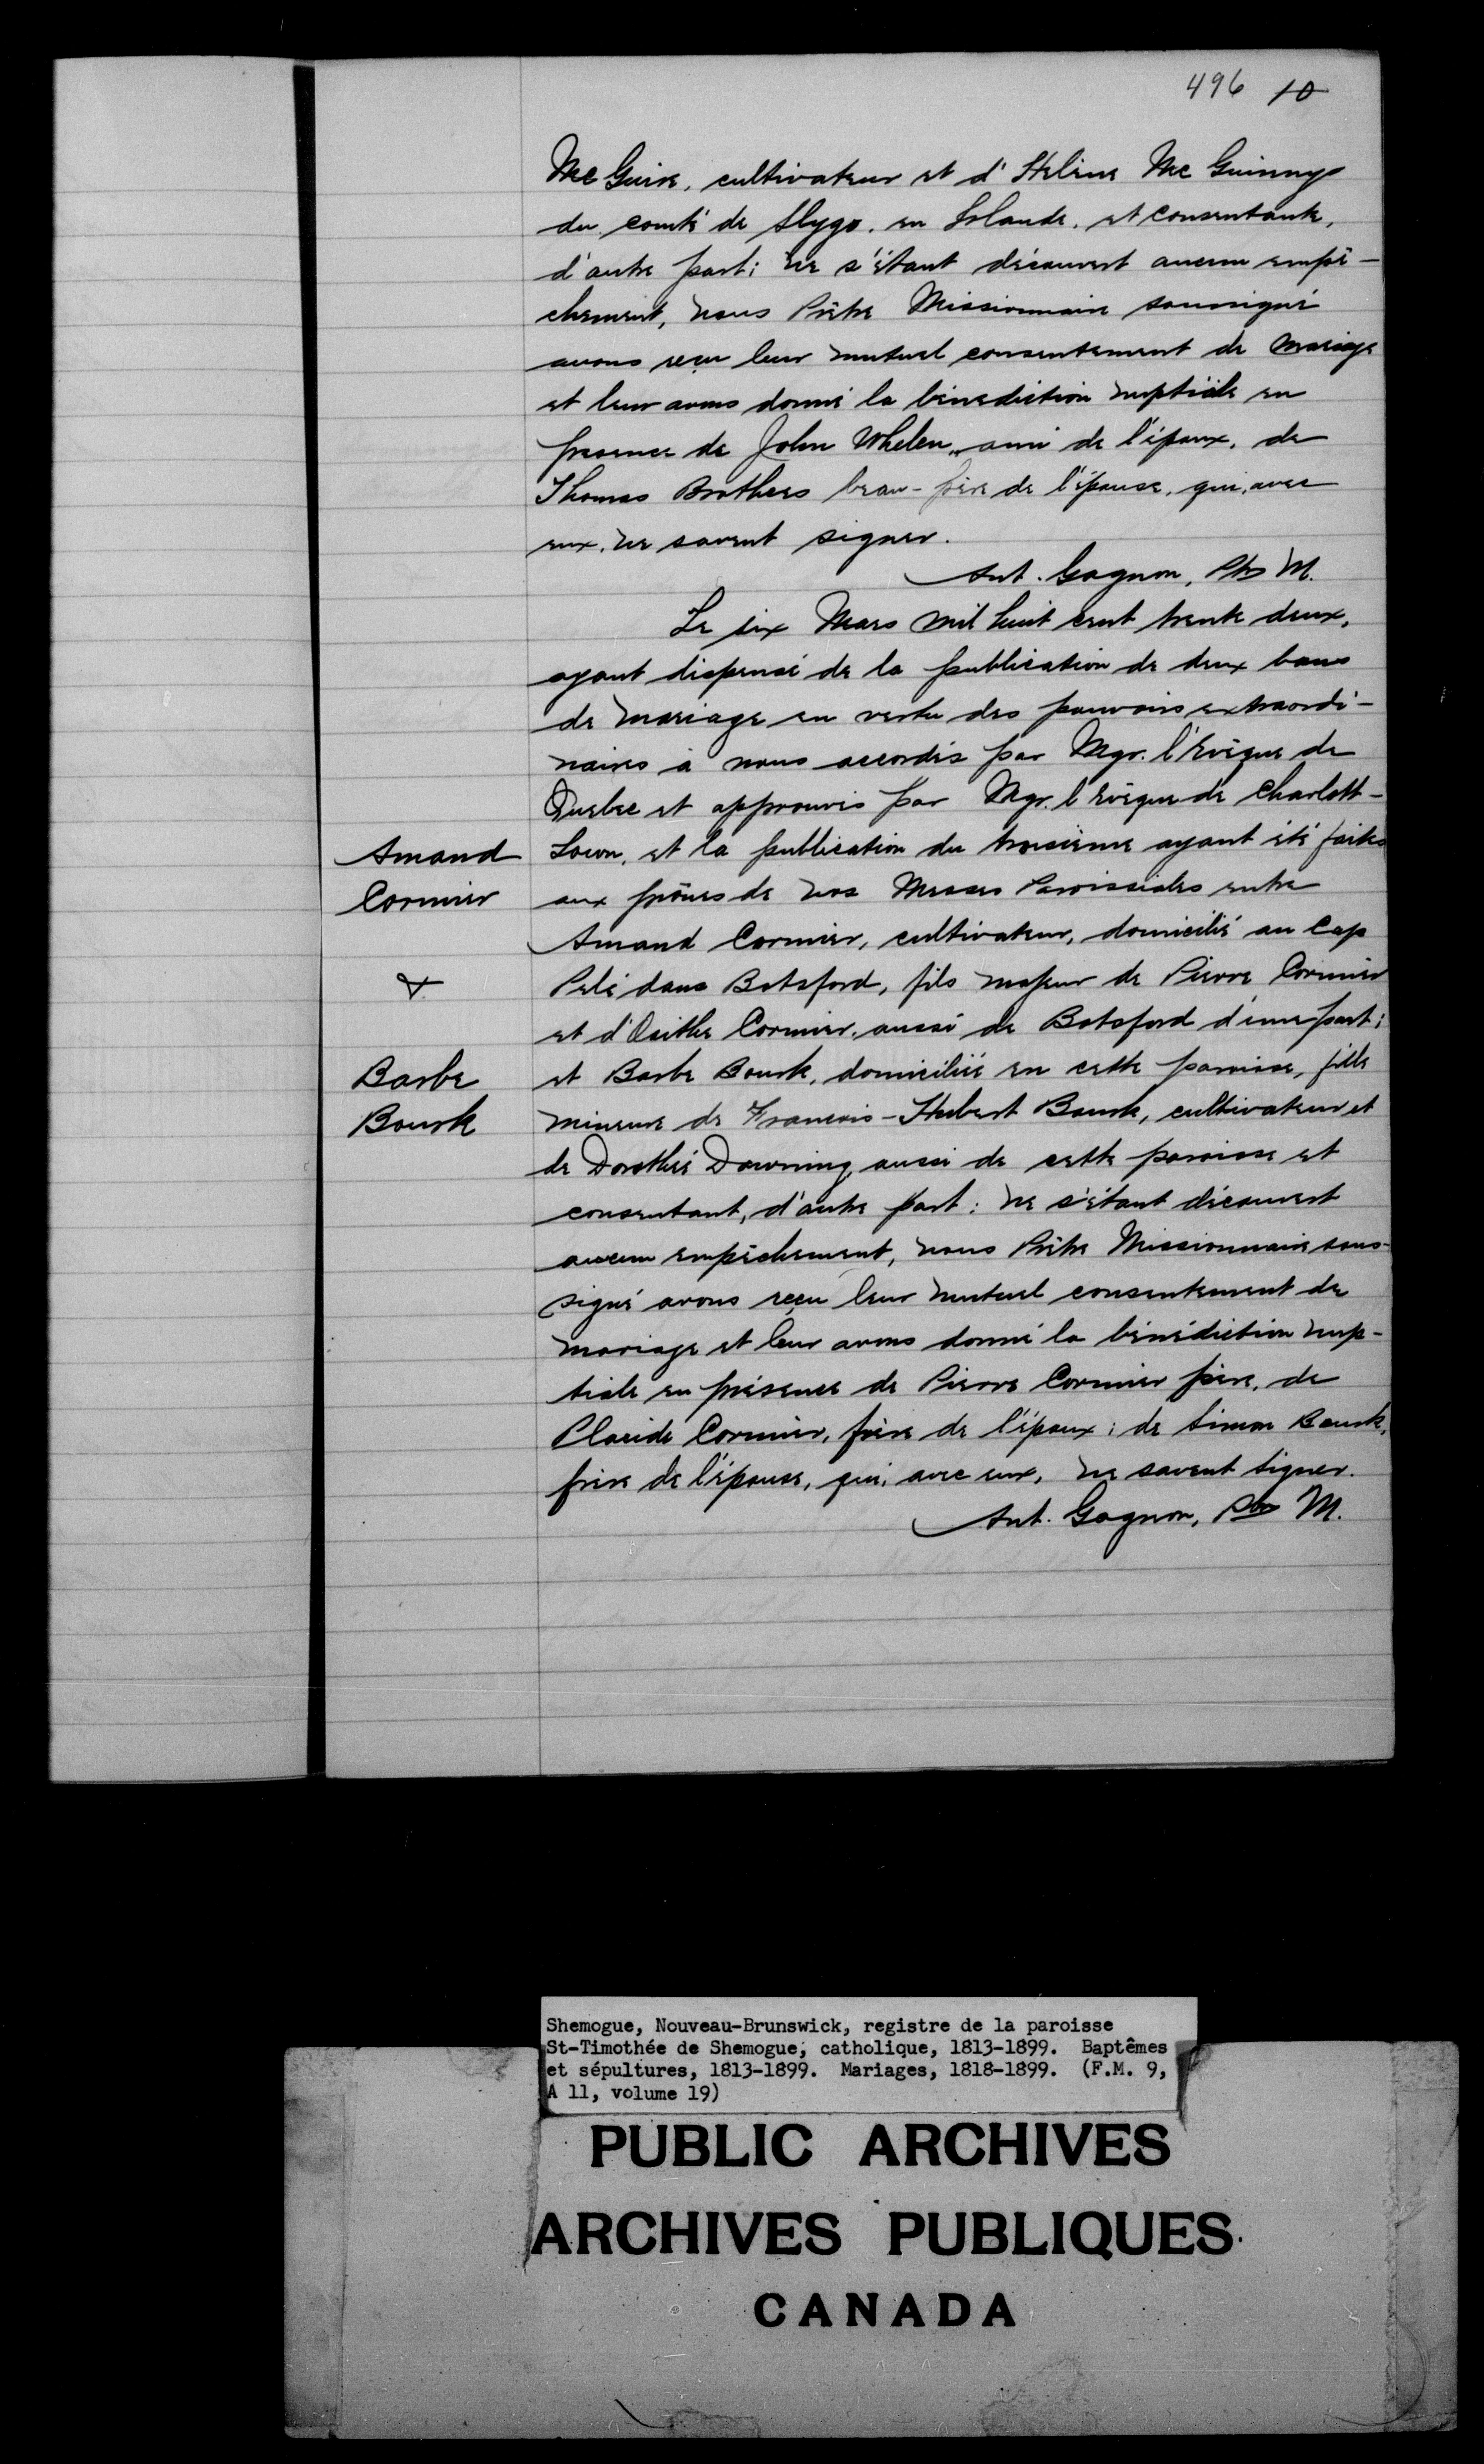 496 10
Mc Guire, cultivateur et d'Helène Mc Guinny
du comté de Slygo, en Irlande, et consentante,
d'autre part; ne s'étant découvert aucun empê-
chement, nous Prêtre Missionnaire soussigné
avons reçu leur mutuel consentement de mariage
et leur avons donné la bénédiction nuptiale en
presence de John Whelen, ami de l'époux, de
Thomas Brothers beau-père de l'épouse, qui, avec
eux, ne savent signer.
Ant. Gagnon, Ptre M.
Le six Mars mil huit cent trente deux,
ayant dispensé de la publication de deux bans
de mariage en vertu des pouvoirs extraordi-
naires à nous accordés par Mgr. l'Evêque de
Quebec et approuvés par Mgr. l'Evêque de Charlott-
Town, et la publication du troisième ayant été faite
aux prônes de nos Messes Paroissiales entre
Amand Cormier, cultivateur, domicilié au Cap
Pelé dans Botsford, fils majeur de Pierre Cormier
et d'Osithe Cormier, aussi de Botsford d'une part;
et Barbe Bourk, domiciliée en cette paroisse, fille
mineure de François-Hubert Bourk, cultivateur et
de Dorothé Downing, aussi de cette paroisse et
consentant, d'autre part: ne s'étant découvert
aucun empêchement, nous Prêtre Missionnaire sous-
signé avons reçu leur mutuel consentement de
mariage et leur avons donné la bénédiction nup-
tiale en présence de Pierre Cormier père, de
Placide Cormier, frère de l'époux; de Simon Bourk,
frère de l'épouse, qui, avec eux, ne savent signer.
Ant. Gagnon, Ptre M.
Amand
Cormier
&
Barbe
Bourk
Shemogue, Nouveau-Brunswick, registre de la paroisse
St-Timothée de Shemogue, catholique, 1813-1899. Baptêmes
et sépultures, 1813-1899. Mariages, 1818-1899. (F.M. 9,
A 11, volume 19)
PUBLIC ARCHIVES
ARCHIVES PUBLIQUES
CANADA